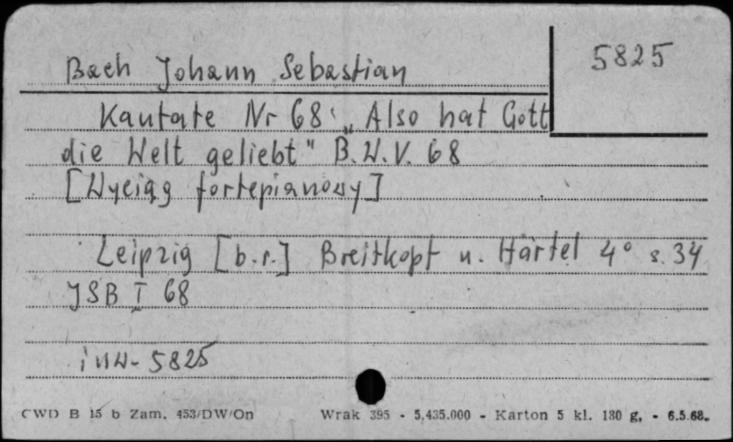 5825
Bach Johann Sebastian
Kantate Nr 68: „Also hat Gott
die Welt geliebt" B.W.V. 68
[Wyciąg fortepianowy]
Leipzig [b.r.] Breitkopf u. Härtel 4° s. 34
JSB I 68
inw. 5825
CWD B 15 b Zam. 453/DW/On Wrak 395 - 5,435.000 - Karton 5 kl. 180 g. - 6.5.68.